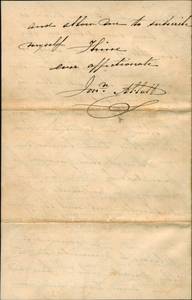 and allow me to subscribe
myself Thine
ever affectionate
Jonn. Abbott